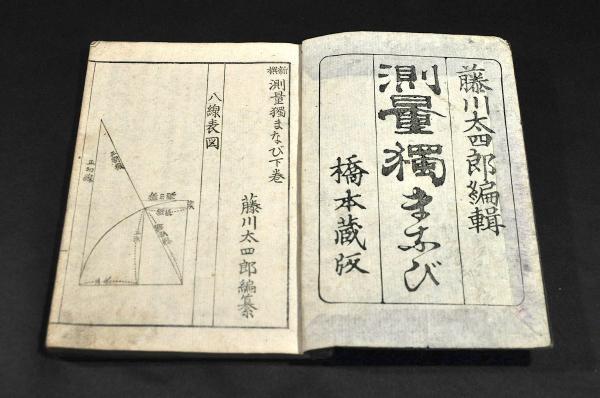 藤川太四郎編輯
測量獨まなび
橋本蔵版
新撰
測量獨まなび下巻
藤川太四郎編纂
八線表図
正切線